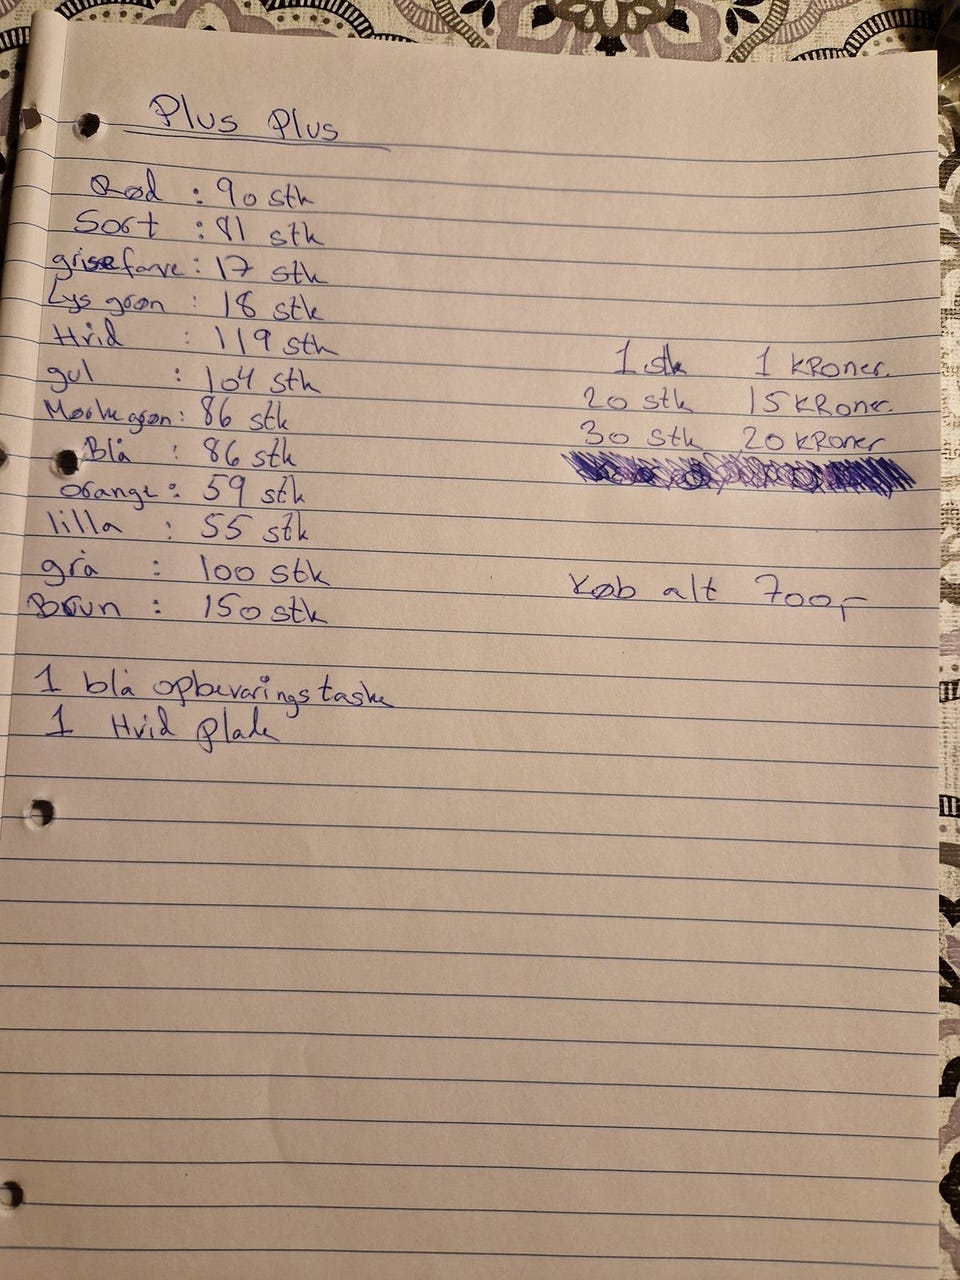 Plus Plus
Rød : 90 stk
Sort : 81 stk
grisefarve : 17 stk
Lys grøn : 18 stk
Hvid : 119 stk
gul : 104 stk
Mørkegrøn : 86 stk
Blå : 86 stk
Orange : 59 stk
lilla : 55 stk
grå : 100 stk
Brun : 150 stk
1 blå opbevaringstaske
1 Hvid plade
1 stk 1 KRoner.
20 stk 15 KRoner.
30 stk 20 KRoner
Køb alt 700,-